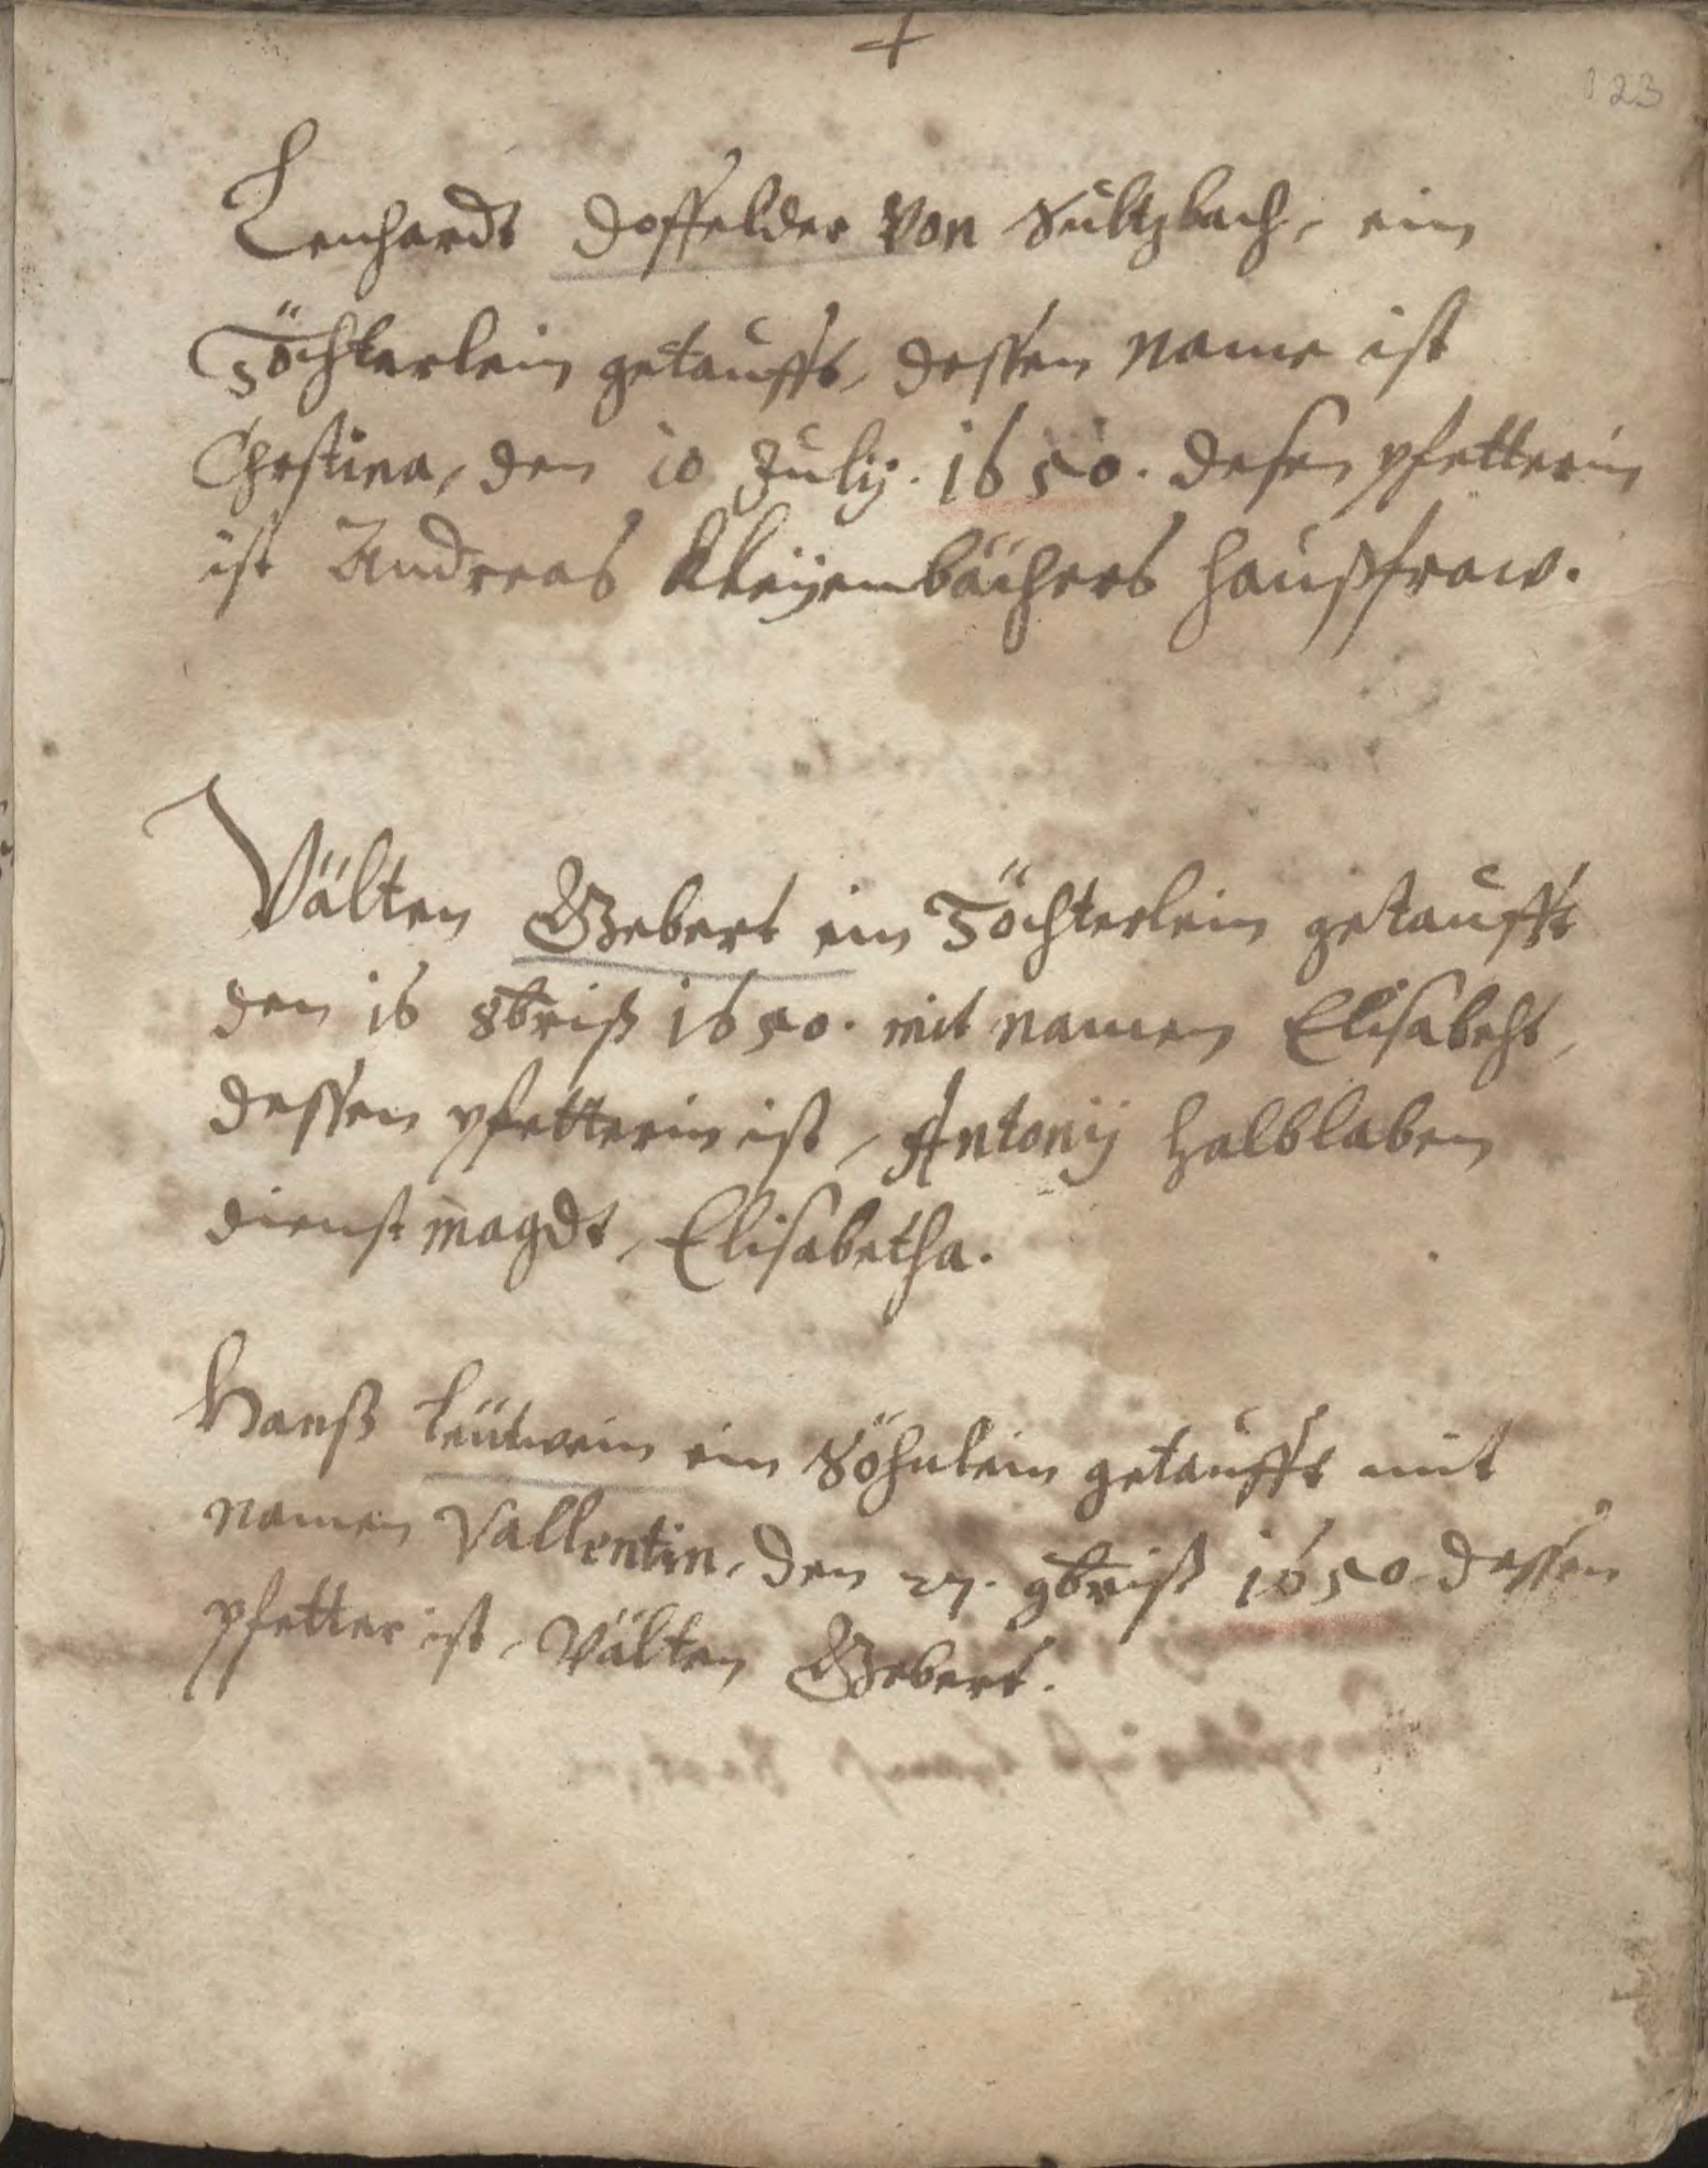 123
Lenhardt Doffelder Von Sultzbach, ein
Töchterlein getaufft, dessen name ist
Chrstina, den 10 July. 1650. desen pfetterin
ist Andreas Kleyenbächers haußfraw.
Välten Gebert ein Töchterlein getaufft
den 16 8briß 1650. mit namen Elisabeht,
dessen pfetterin ist, Antonij halblaben
dienst magdt, Elisabetha.
Hanß leutwein ein Söhnlein getaufft mit
namen Vallentin, den 27. 9briß 1650. dessen
pfetter ist, Välten Gebert.